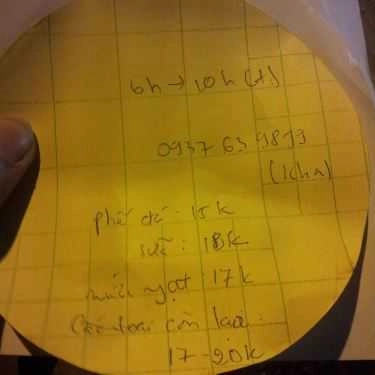 6h → 10h (t)
0937 63 9819
(Kha)
phê đá : 15k
sữa : 18k
nước ngọt : 17k
Các loại còn lại :
17 - 20k